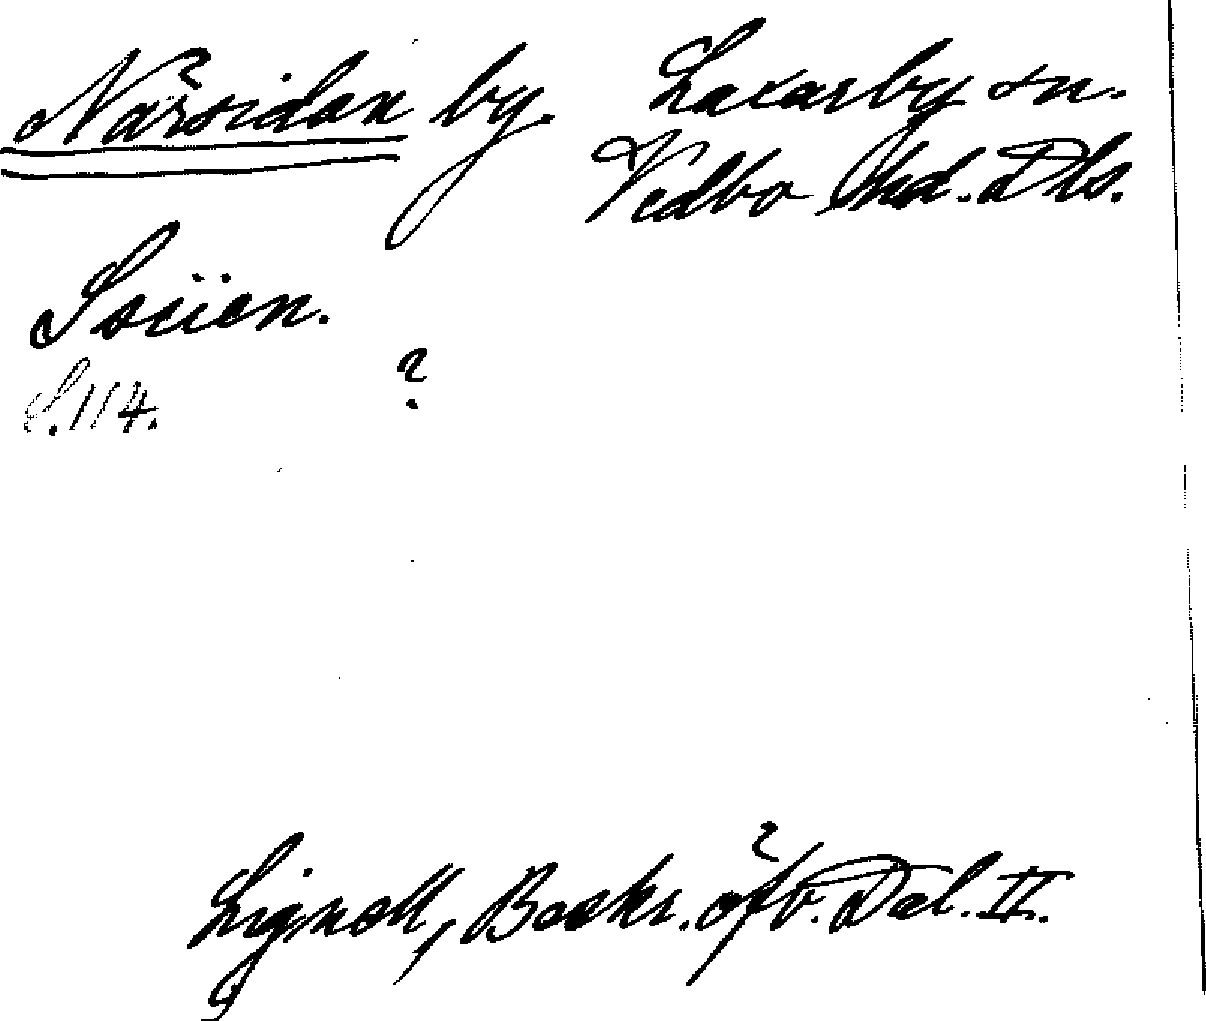 Närsidan by. Laxarby sn.
Vedbo Hd. Dls.
S. 114. ?
Lignell, Beskr. öfv. Dal. II.